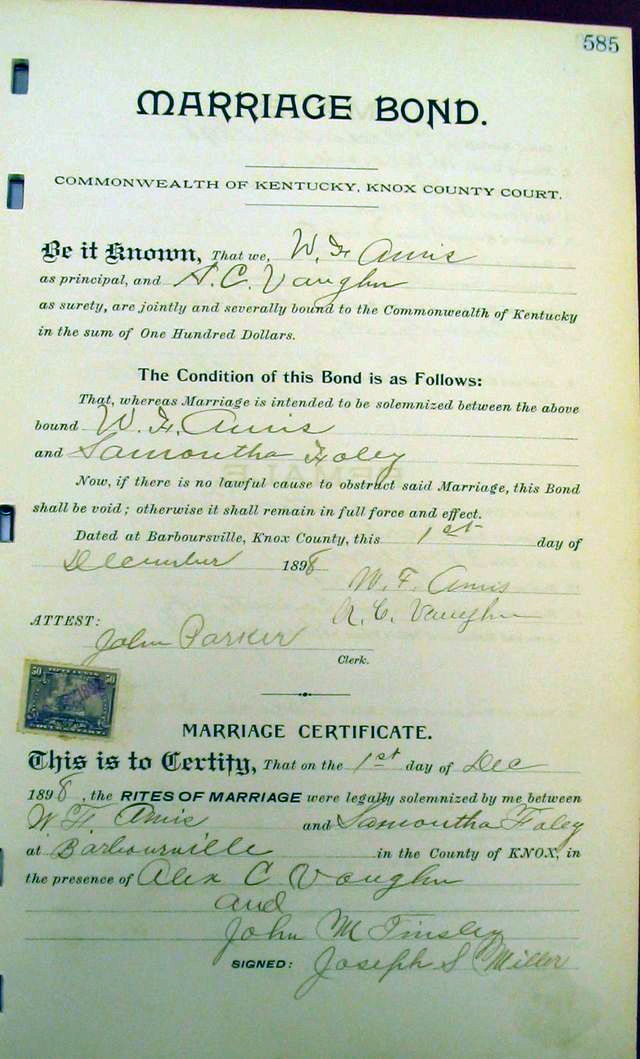 585
MARRIAGE BOND.
COMMONWEALTH OF KENTUCKY, KNOX COUNTY COURT.
Be it Known, That we, W. F. Amis
as principal, and A. C. Vaughn
as surety, are jointly and severally bound to the Commonwealth of Kentucky
in the sum of One Hundred Dollars.
The Condition of this Bond is as Follows:
That, whereas Marriage is intended to be solemnized between the above
bound W. F. Amis
and Samontha Foley
Now, if there is no lawful cause to obstruct said Marriage, this Bond
shall be void; otherwise it shall remain in full force and effect.
Dated at Barboursville, Knox County, this 1st day of
December 1898
W. F. Amis
A. C. Vaughn
ATTEST:
John Parker
Clerk.
50 50
MARRIAGE CERTIFICATE.
This is to Certify, That on the 1st day of Dec
1898, the RITES OF MARRIAGE were legally solemnized by me between
W. F. Amis and Samontha Foley
at Barbourville in the County of KNOX, in
the presence of Alex C Vaughn
and
John M Tinsley
SIGNED: Joseph S Miller